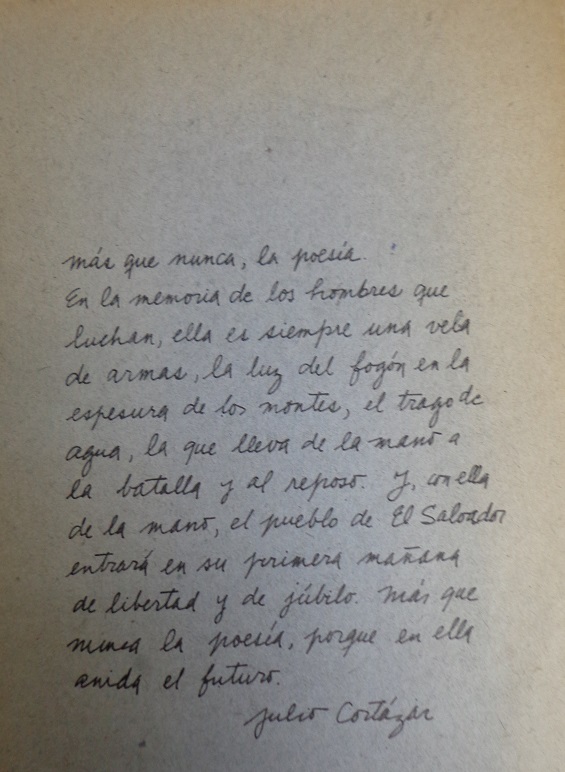 más que nunca, la poesía.
En la memoria de los hombres que
luchan, ella es siempre una vela
de armas, la luz del fogón en la
espesura de los montes, el trago de
agua, la que lleva de la mano a
la batalla y al reposo. Y, con ella
de la mano, el pueblo de El Salvador
entrará en su primera mañana
de libertad y de júbilo. Más que
nunca la poesía, porque en ella
anida el futuro.
Julio Cortázar